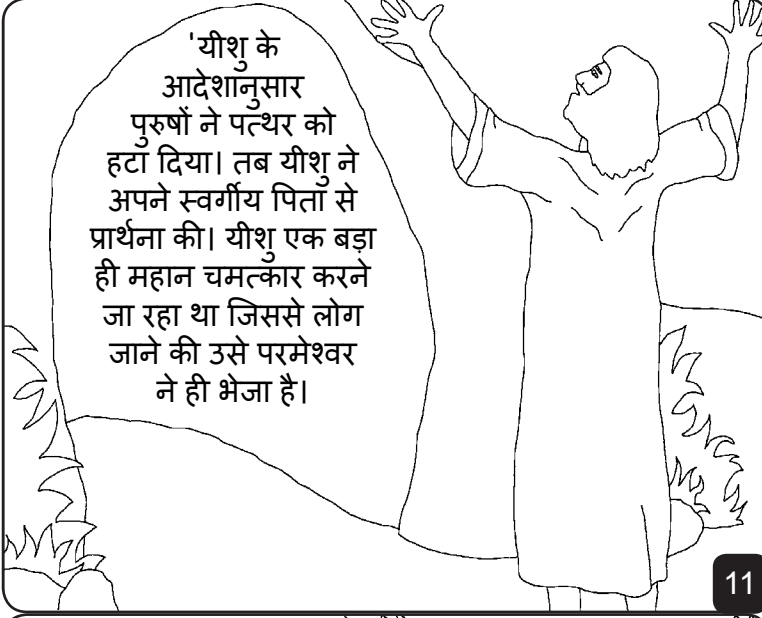 'यीशु के
आदेशानुसार
पुरुषों ने पत्थर को
हटा दिया। तब यीशु ने
अपने स्वर्गीय पिता से
प्रार्थना की। यीशु एक बड़ा
ही महान चमत्कार करने
जा रहा था जिससे लोग
जाने की उसे परमेश्वर
ने ही भेजा है।
11